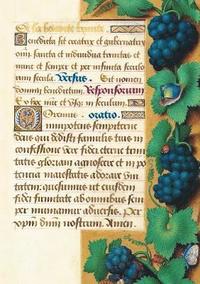 Benedicta sit creatrix et gubernatrix
omniū sancta et individua trinitas et
nunc et semper et per infinita seculo
rum secula. Versus. Sit nomen
domini benedictum. Responsorium.
Ex hoc nunc et usq; in seculum.
Oremus. oratio.
Omnipotens sempiterne
deus qui dedisti famulis tuis in
confessione vere fidei eterne trini
tatis gloriam agnoscere et in po
tentia maiestatis adorare uni
tatem: quesumus ut eiusdem
fidei firmitate ab omnibus sem
per muniamur adversis. Per
xp̄m dn̄m nostrum. Amen.